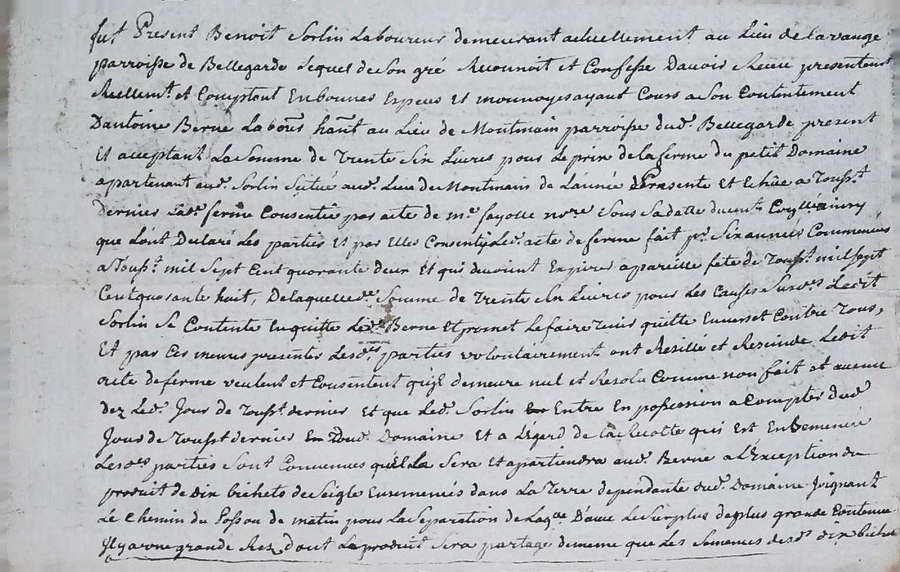 fut Present Benoit Sorlin Laboureur demeurant actuellement au Lieu de Lavauge
parroisse de Bellegarde Lequel de Son gré Reconnoit et Confesse Davoir Receu presentemt
Reellemt. et Comptant En bonnes Especes Et monnoyes ayant Cours a Son Contentement
Dantoine Berne Labors. hant. au Lieu de Montmain parroisse dud. Bellegarde present
Et acceptant La Somme de Trente Six Livres pour Le prix de la ferme du petit Domaine
apartenant aud. Sorlin Scitué aud. Lieu de Montmain de Lannée Presente Et Echüe a Touss.t
dernier Lade. ferme Consentie par acte de me. fayolle nore Sous Sa datte
que Lont Declaré Les parties Et par Elles Consenty Led. acte de ferme fait pr. Six années Commencées
a Touss.t mil Sept Cent quarante deux Et qui devoient Expirer a pareille fete de Touss.t mil Sept
Cent quarante huit, De laquelle de. Somme de Trente Six Livres pour Les Causes Ledit
Sorlin Se Contente En quitte Led. Berne Et promet Le faire Tenir quitte Envers et Contre Tous,
Et par Ces memes presentes Lesdes. parties volontairement ont Resillié et Rescindé Ledit
acte de ferme veulent et Consentent quil demeure nul et Resolu Comme non fait et avenu
dez Led. Jour de Touss.t dernier Et que Led. Sorlin Entre En possession a Compter dud.
Jour de Touss.t dernier dud. Domaine Et a Légard de la Recolte qui Est En Semence
Lesdes parties Sont Convenues quel La Sera Et apartiendra aud. Berne a LException du
produit de Dix bichets de Seigle Ensemencés dans La Terre dependante dud. Domaine Joignant
Le Chemin du de matin pour La Separation de Laq.ue Davec Le Surplus de plus grande Contenue
Il y a une grande Rez dont Le produit Sera partagé de meme que Les Semences desd. dix bichets